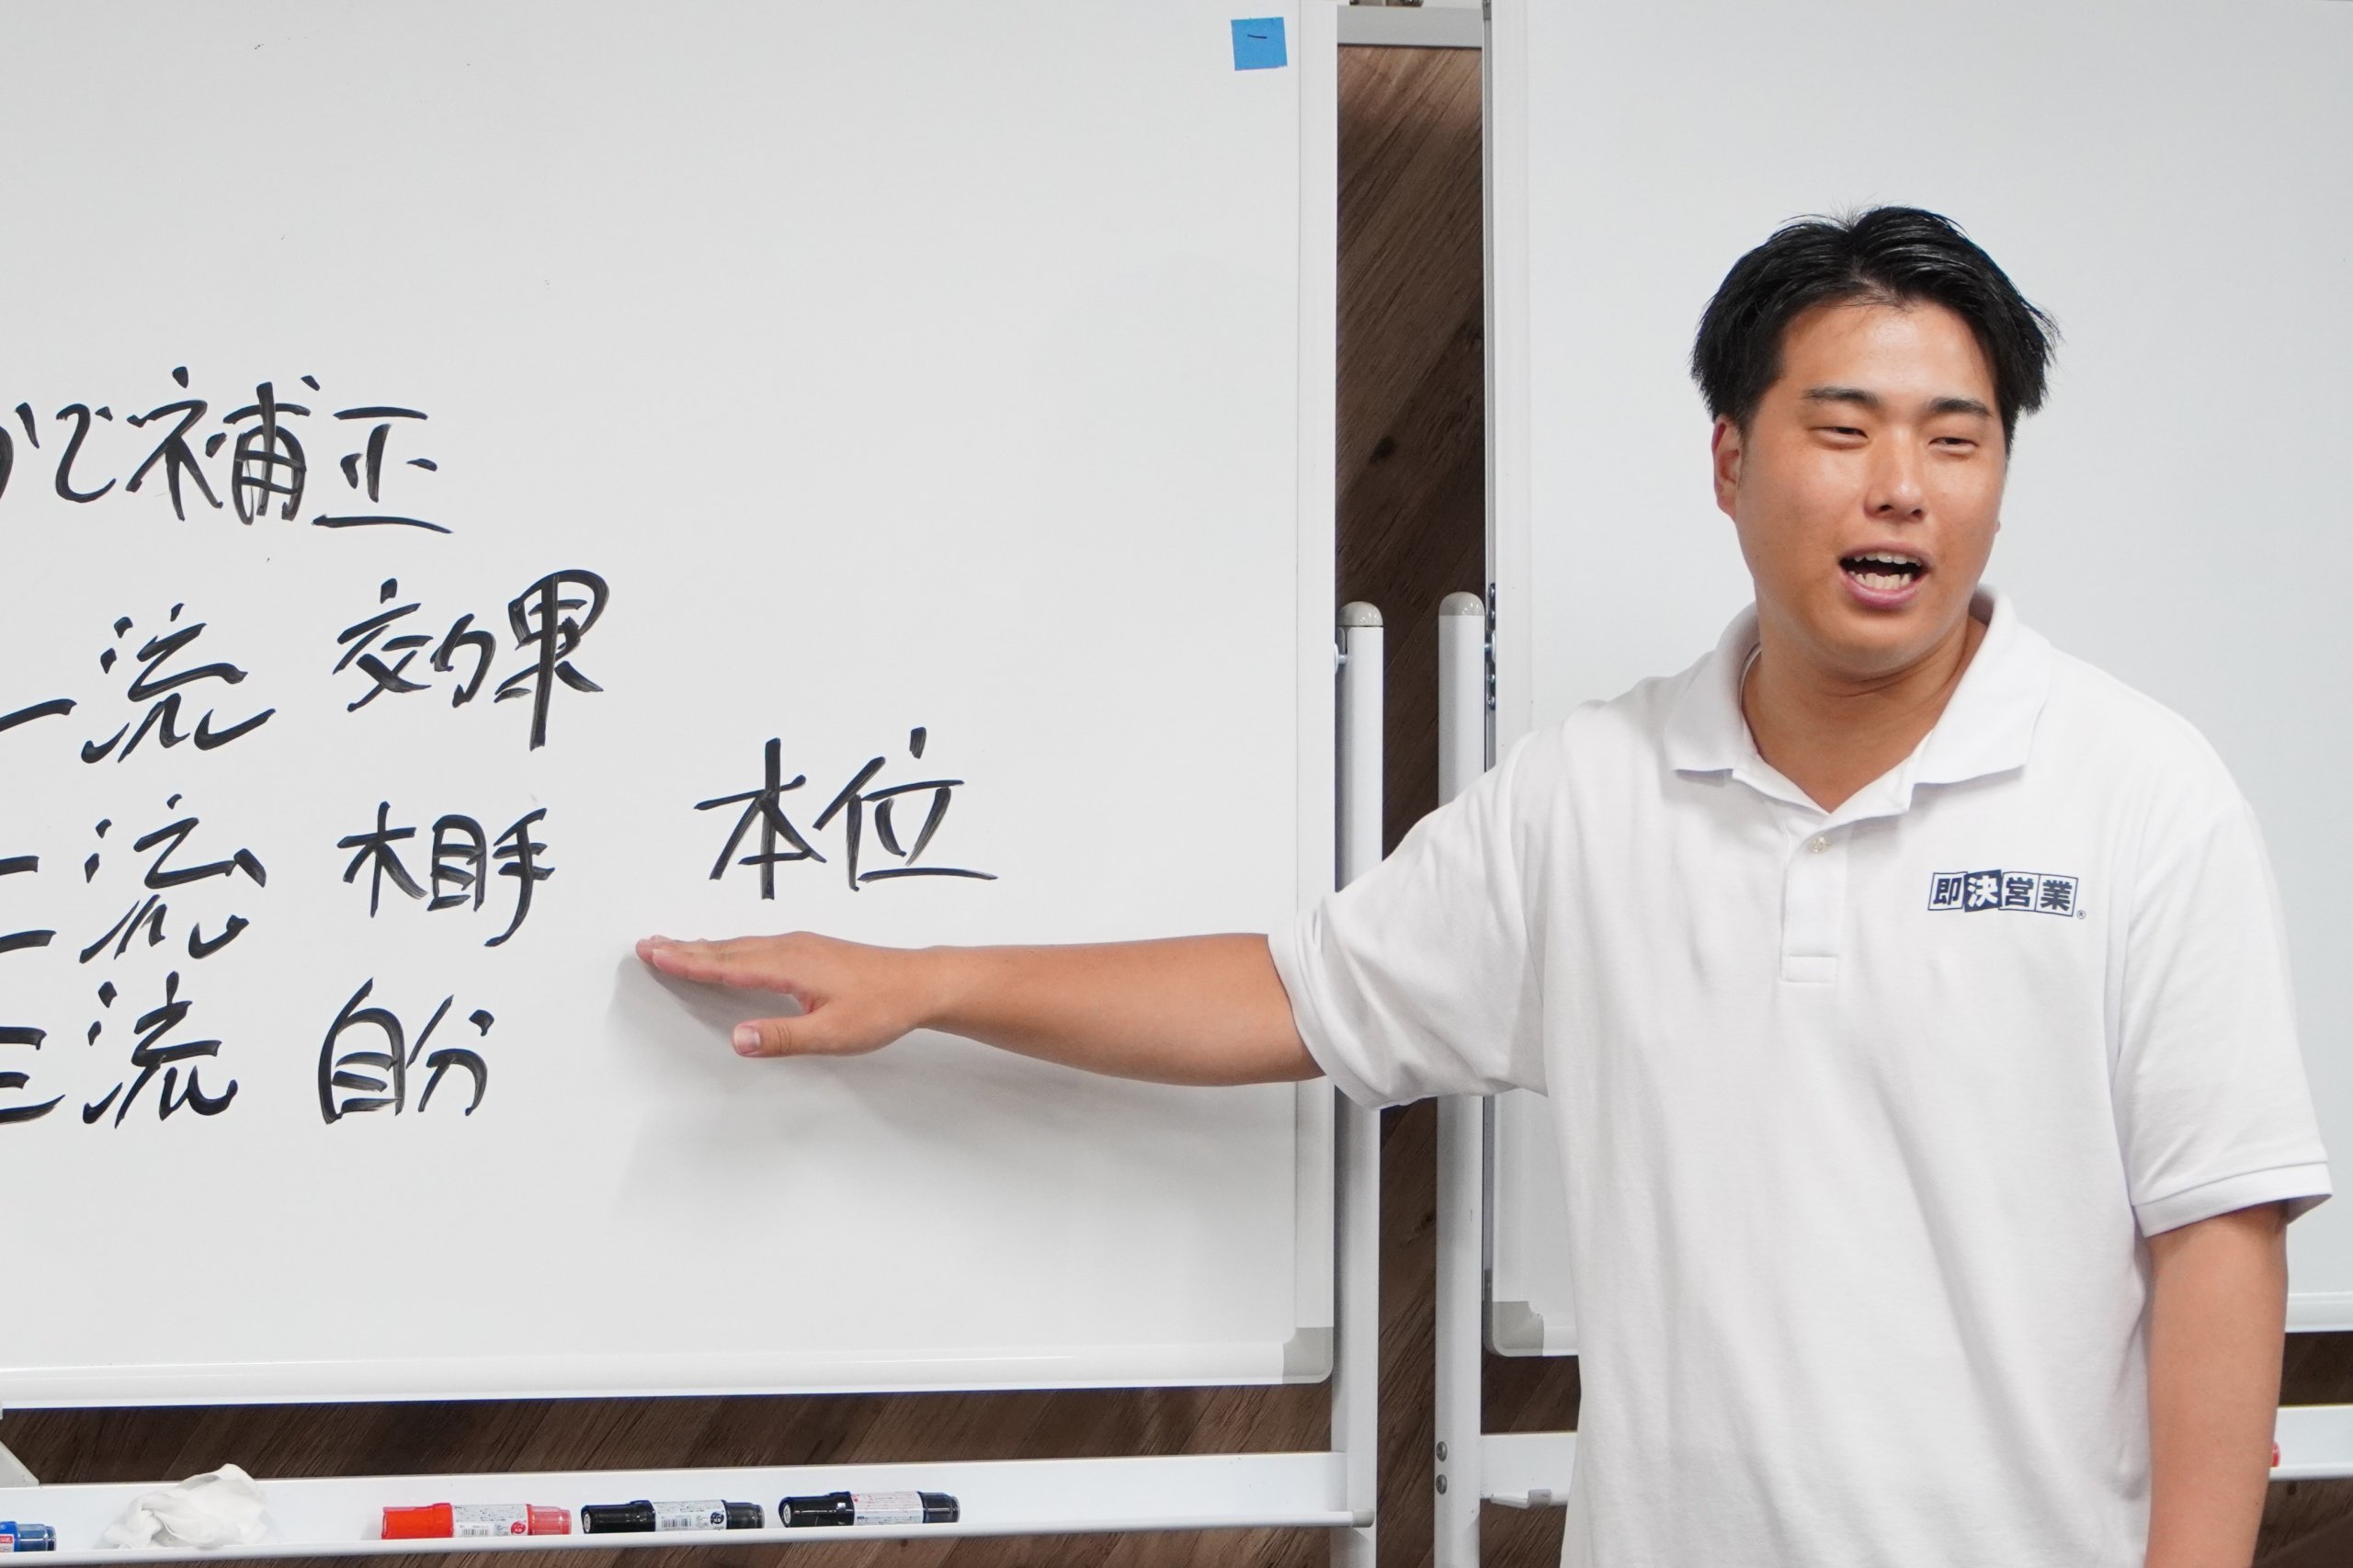 で補正
一流 効果
二流 相手 本位
三流 自分
即決営業®